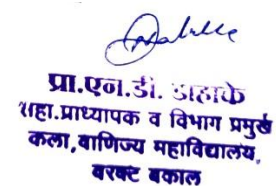 प्रा.एन.डी. डाहाके
सहा.प्राध्यापक व विभाग प्रमुख
कला,वाणिज्य महाविद्यालय,
वरवट बकाल